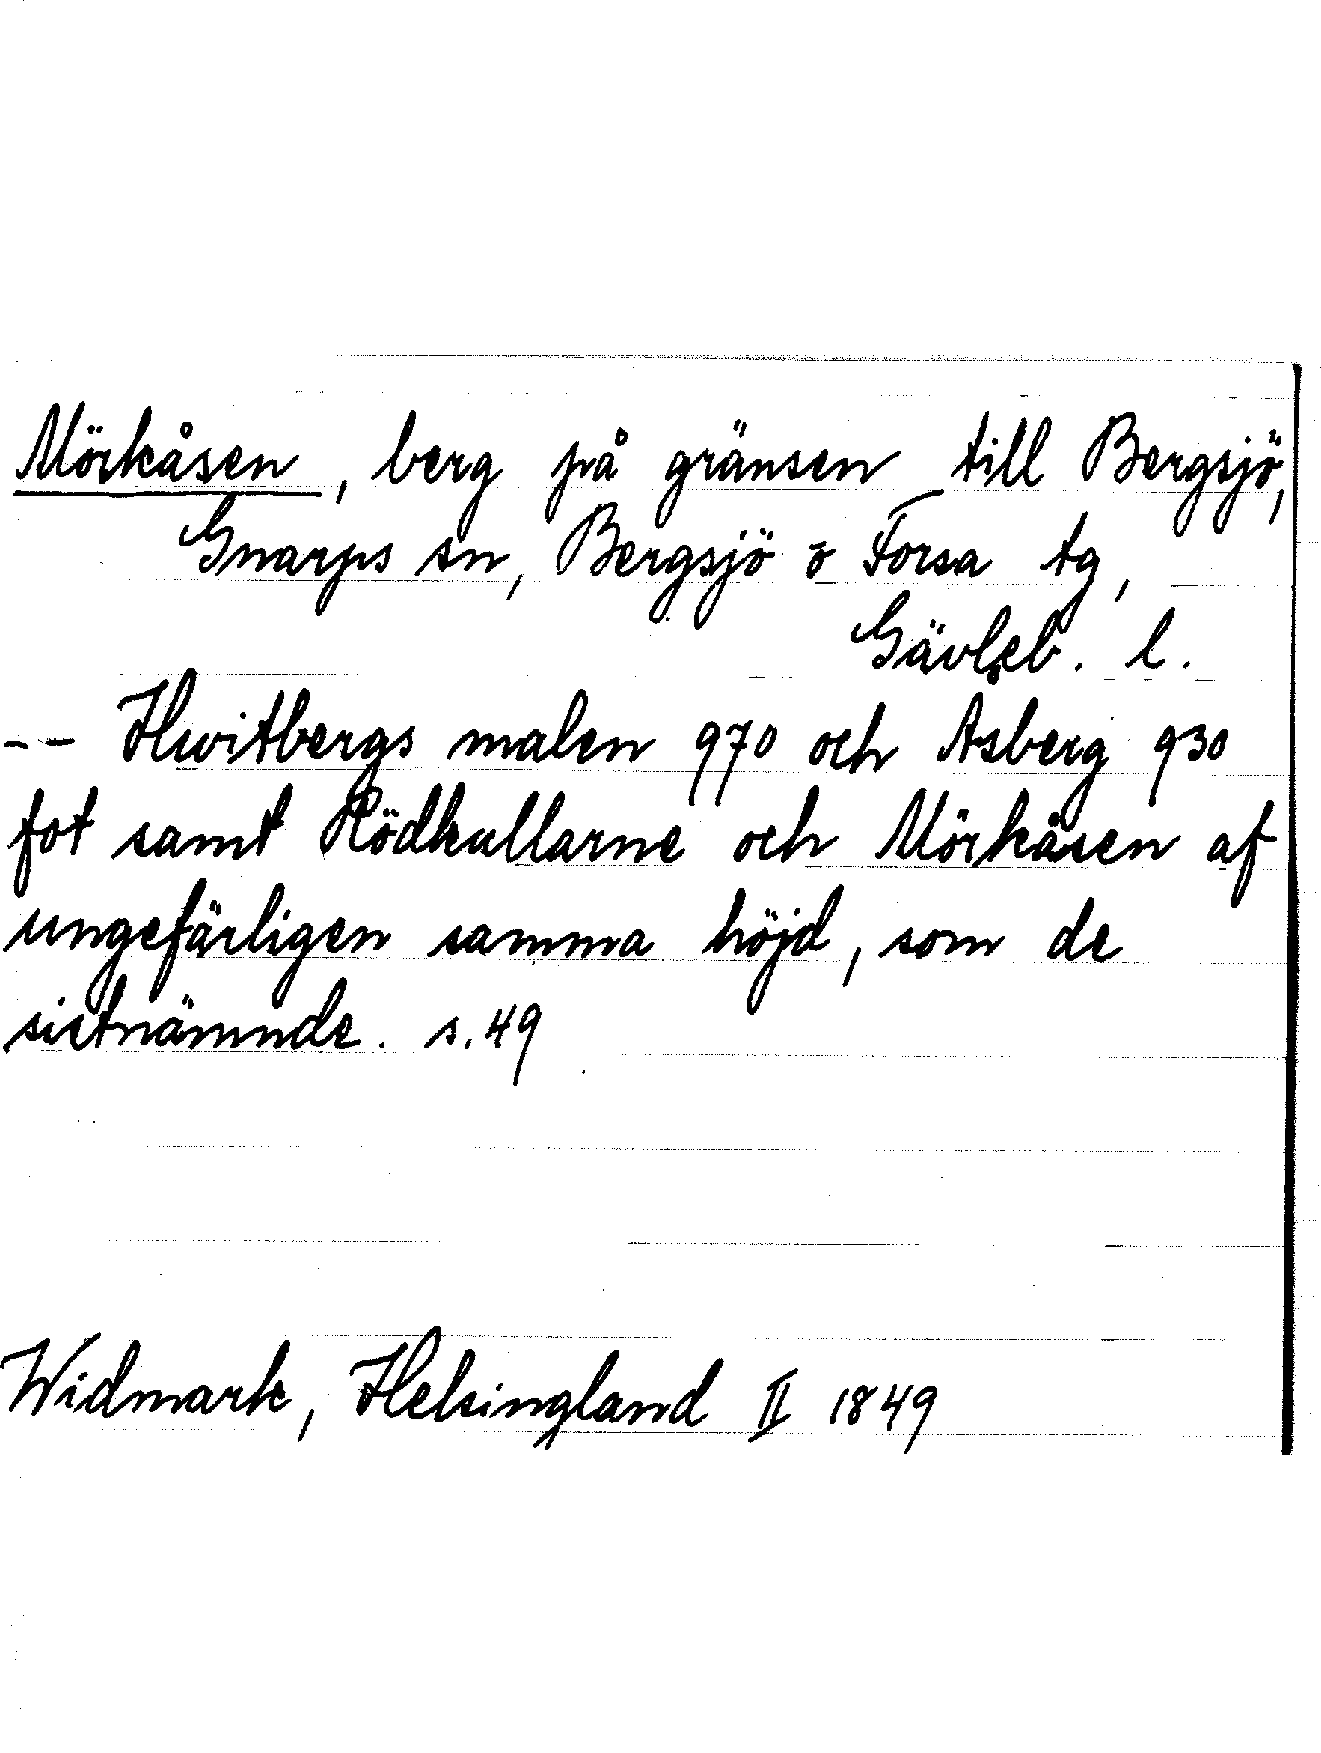 Mörkåsen, berg på gränsen till Bergsjö,
Gnarps sn, Bergsjö o Forsa tg,
Gävleb. l.
-- Hwitbergs malen 970 och Asberg 930
fot samt Rödkullarne och Mörkåsen af
ungefärligen samma höjd, som de
sistnämnde. s. 49
Widmark, Helsingland II 1849